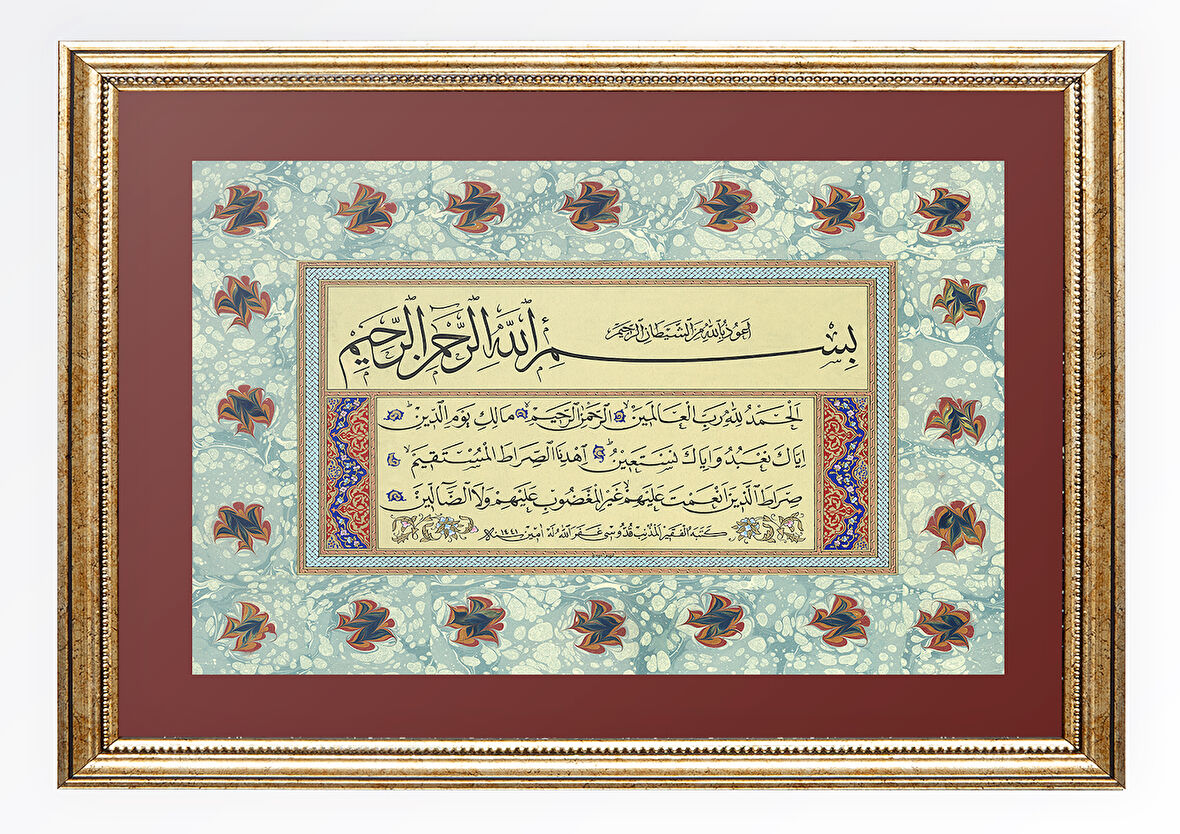 اعوذ بالله من الشيطان الرجيم
بِسْمِ ٱللهِ ٱلرَّحْمٰنِ ٱلرَّحِيمِ
اَلْحَمْدُ لِلّٰهِ رَبِّ الْعَالَمِينَ اَلرَّحْمٰنِ الرَّحِيمِ مَالِكِ يَوْمِ الدِّينِ
اِيَّاكَ نَعْبُدُ وَاِيَّاكَ نَسْتَعِينُ اِهْدِنَا الصِّرَاطَ الْمُسْتَقِيمَ
صِرَاطَ الَّذِينَ اَنْعَمْتَ عَلَيْهِمْ غَيْرِ الْمَغْضُوبِ عَلَيْهِمْ وَلَا الضَّالِّينَ
كتبه الفقير المذنب قدوسى غفر الله له امين